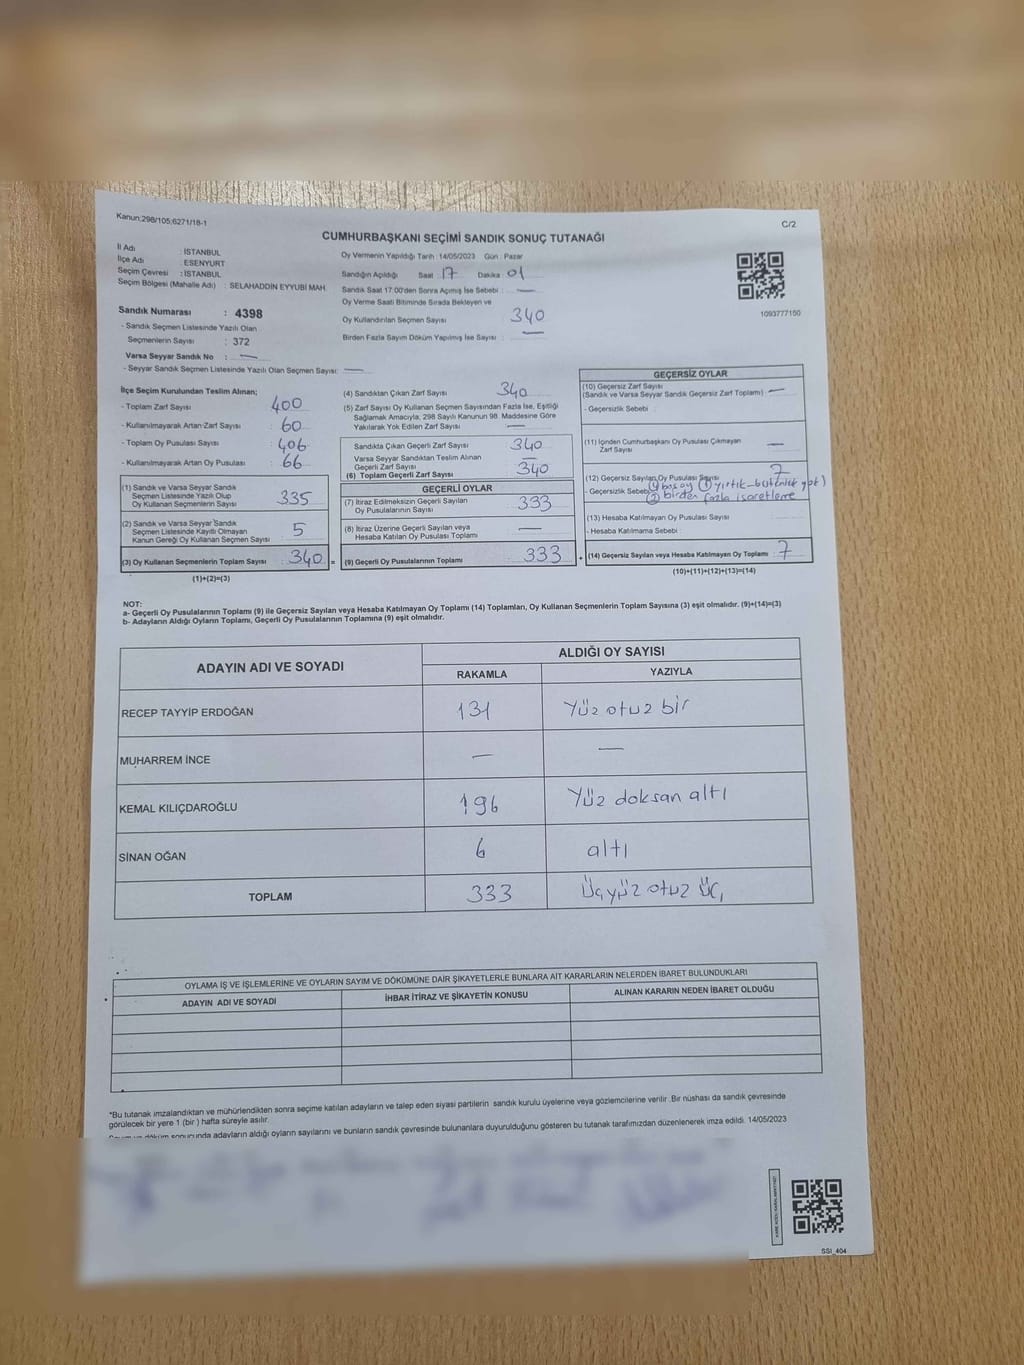 Kanun;298/105;6271/18-1
C/2
CUMHURBAŞKANI SEÇİMİ SANDIK SONUÇ TUTANAĞI
İl Adı : İSTANBUL
İlçe Adı : ESENYURT
Seçim Çevresi : İSTANBUL
Seçim Bölgesi (Mahalle Adı) : SELAHADDİN EYYUBİ MAH.
Sandık Numarası : 4398
- Sandık Seçmen Listesinde Yazılı Olan
Seçmenlerin Sayısı : 372
Varsa Seyyar Sandık No : —
- Seyyar Sandık Seçmen Listesinde Yazılı Olan Seçmen Sayısı: —
Oy Vermenin Yapıldığı Tarih :14/05/2023 Gün : Pazar
Sandığın Açıldığı Saat : 17 Dakika : 01
Sandık Saat 17:00'den Sonra Açılmış İse Sebebi : —
Oy Verme Saati Bitiminde Sırada Bekleyen ve
Oy Kullandırılan Seçmen Sayısı 340
Birden Fazla Sayım Döküm Yapılmış İse Sayısı : —
1093777150
İlçe Seçim Kurulundan Teslim Alınan;
- Toplam Zarf Sayısı 400
- Kullanılmayarak Artan Zarf Sayısı 60
- Toplam Oy Pusulası Sayısı 406
- Kullanılmayarak Artan Oy Pusulası 66
(1) Sandık ve Varsa Seyyar Sandık
Seçmen Listesinde Yazılı Olup
Oy Kullanan Seçmenlerin Sayısı 335
(2) Sandık ve Varsa Seyyar Sandık
Seçmen Listesinde Kayıtlı Olmayan
Kanun Gereği Oy Kullanan Seçmen Sayısı 5
(3) Oy Kullanan Seçmenlerin Toplam Sayısı 340 =
(1)+(2)=(3)
(4) Sandıktan Çıkan Zarf Sayısı 340
(5) Zarf Sayısı Oy Kullanan Seçmen Sayısından Fazla İse, Eşitliği
Sağlamak Amacıyla, 298 Sayılı Kanunun 98. Maddesine Göre
Yakılarak Yok Edilen Zarf Sayısı —
Sandıkta Çıkan Geçerli Zarf Sayısı 340
Varsa Seyyar Sandıktan Teslim Alınan
Geçerli Zarf Sayısı —
(6) Toplam Geçerli Zarf Sayısı 340
GEÇERLİ OYLAR
(7) İtiraz Edilmeksizin Geçerli Sayılan
Oy Pusulalarının Sayısı 333
(8) İtiraz Üzerine Geçerli Sayılan veya
Hesaba Katılan Oy Pusulası Toplamı —
(9) Geçerli Oy Pusulalarının Toplamı 333 +
GEÇERSİZ OYLAR
(10) Geçersiz Zarf Sayısı
(Sandık ve Varsa Seyyar Sandık Geçersiz Zarf Toplamı) —
- Geçersizlik Sebebi :
(11) İçinden Cumhurbaşkanı Oy Pusulası Çıkmayan
Zarf Sayısı —
(12) Geçersiz Sayılan Oy Pusulası Sayısı 7
- Geçersizlik Sebebi ④ boş oy ① yırtık-bütünlük yok)
② birden fazla işaretleme
(13) Hesaba Katılmayan Oy Pusulası Sayısı
- Hesaba Katılmama Sebebi :
(14) Geçersiz Sayılan veya Hesaba Katılmayan Oy Toplamı : 7
(10)+(11)+(12)+(13)=(14)
NOT:
a- Geçerli Oy Pusulalarının Toplamı (9) ile Geçersiz Sayılan veya Hesaba Katılmayan Oy Toplamı (14) Toplamları, Oy Kullanan Seçmenlerin Toplam Sayısına (3) eşit olmalıdır. (9)+(14)=(3)
b- Adayların Aldığı Oyların Toplamı, Geçerli Oy Pusulalarının Toplamına (9) eşit olmalıdır.
ADAYIN ADI VE SOYADI
ALDIĞI OY SAYISI
RAKAMLA YAZIYLA
RECEP TAYYİP ERDOĞAN 131 Yüz otuz bir
MUHARREM İNCE — —
KEMAL KILIÇDAROĞLU 196 Yüz doksan altı
SİNAN OĞAN 6 altı
TOPLAM 333 Üçyüz otuz üç
OYLAMA İŞ VE İŞLEMLERİNE VE OYLARIN SAYIM VE DÖKÜMÜNE DAİR ŞİKAYETLERLE BUNLARA AİT KARARLARIN NELERDEN İBARET BULUNDUKLARI
ADAYIN ADI VE SOYADI İHBAR İTİRAZ VE ŞİKAYETİN KONUSU ALINAN KARARIN NEDEN İBARET OLDUĞU
*Bu tutanak imzalandıktan ve mühürlendikten sonra seçime katılan adayların ve talep eden siyasi partilerin sandık kurulu üyelerine veya gözlemcilerine verilir .Bir nüshası da sandık çevresinde
görülecek bir yere 1 (bir ) hafta süreyle asılır.
sonucunda adayların aldığı oyların sayılarını ve bunların sandık çevresinde bulunanlara duyurulduğunu gösteren bu tutanak tarafımızdan düzenlenerek imza edildi. 14/05/2023
SSI_404